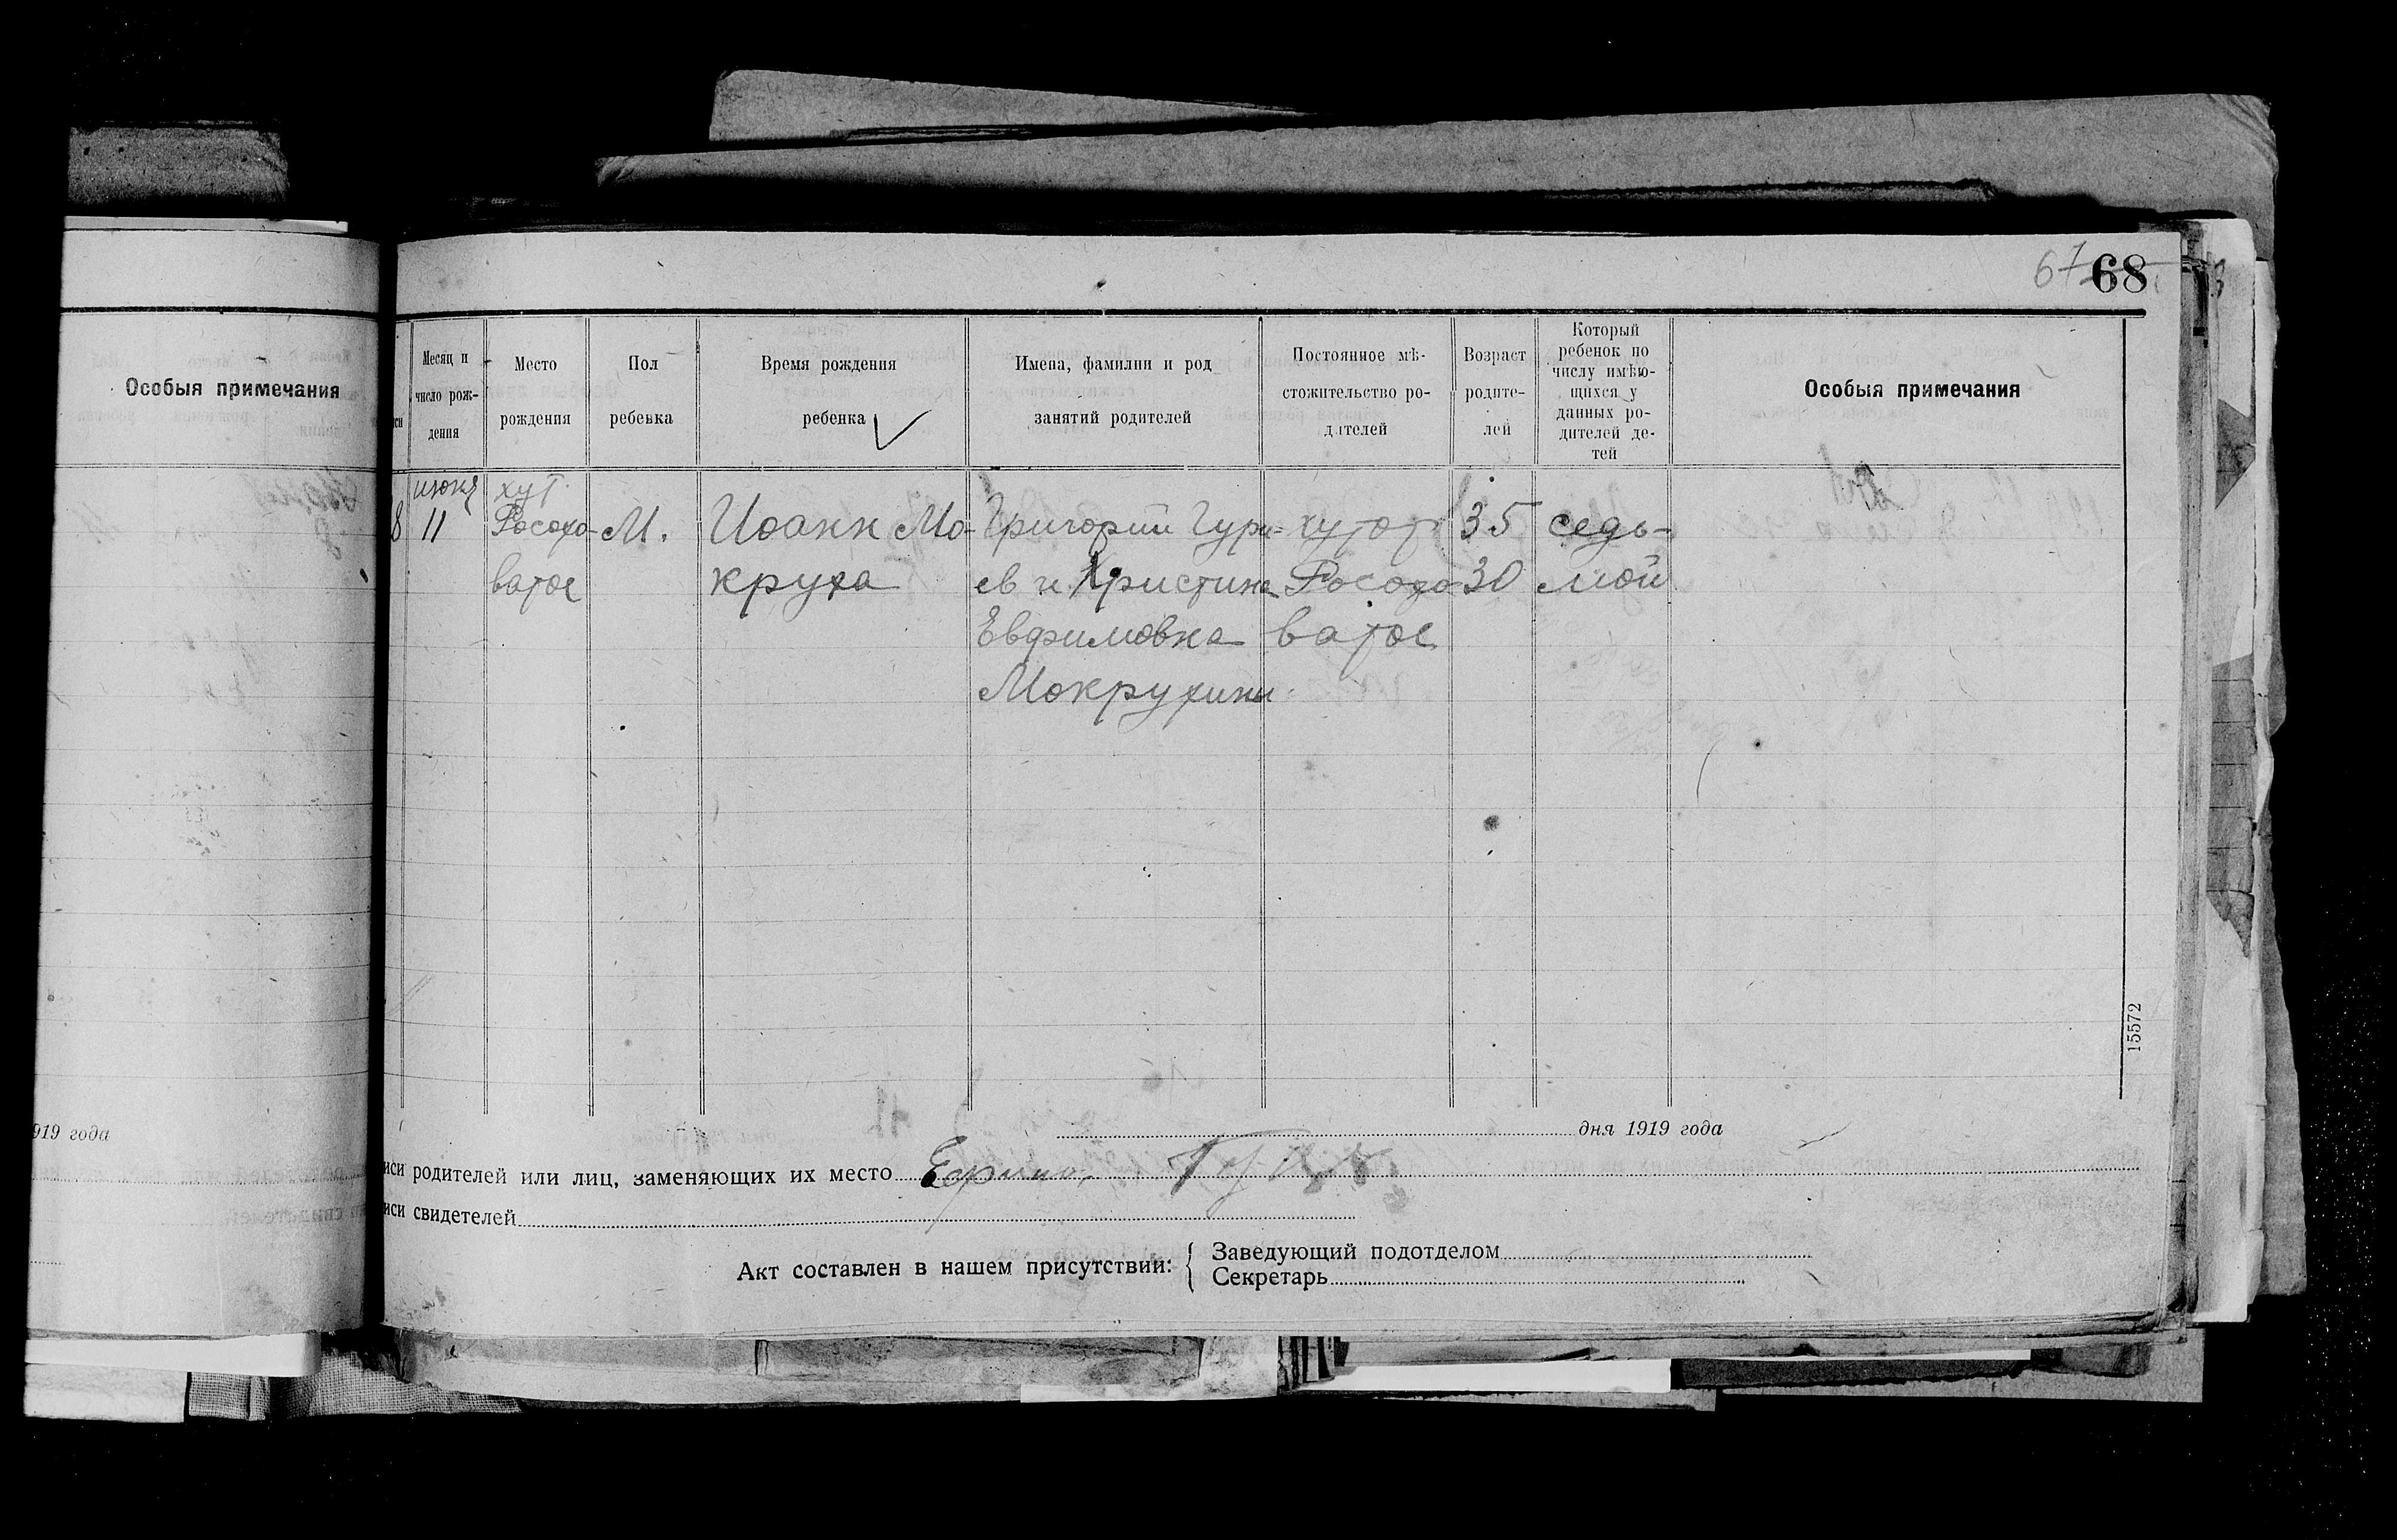 67 68
Особыя примечания
919 года
Месяц и
число рож-
дения
Место
рождения
Пол
ребенка
Время рождения
ребенка
Имена, фамилии и род
занятий родителей
Постоянное мѣ-
стожительство ро-
дителей
Возраст
родите-
лей
Который
ребенок по
числу имѣю-
щихся у
данных ро-
дителей де-
тей
Особыя примечания
8
июня
11
хут.
Росохо-
ватое
М.
Иоанн Мо-
круха
Григорий Гури-
ев и Христина
Евфимовна
Мокрухины
хутор
Росохо
ватое
35
30
седь-
мой
15572
дня 1919 года
иси родителей или лиц, заменяющих их место
иси свидетелей
Акт составлен в нашем присутствии:
Заведующий подотделом
Секретарь